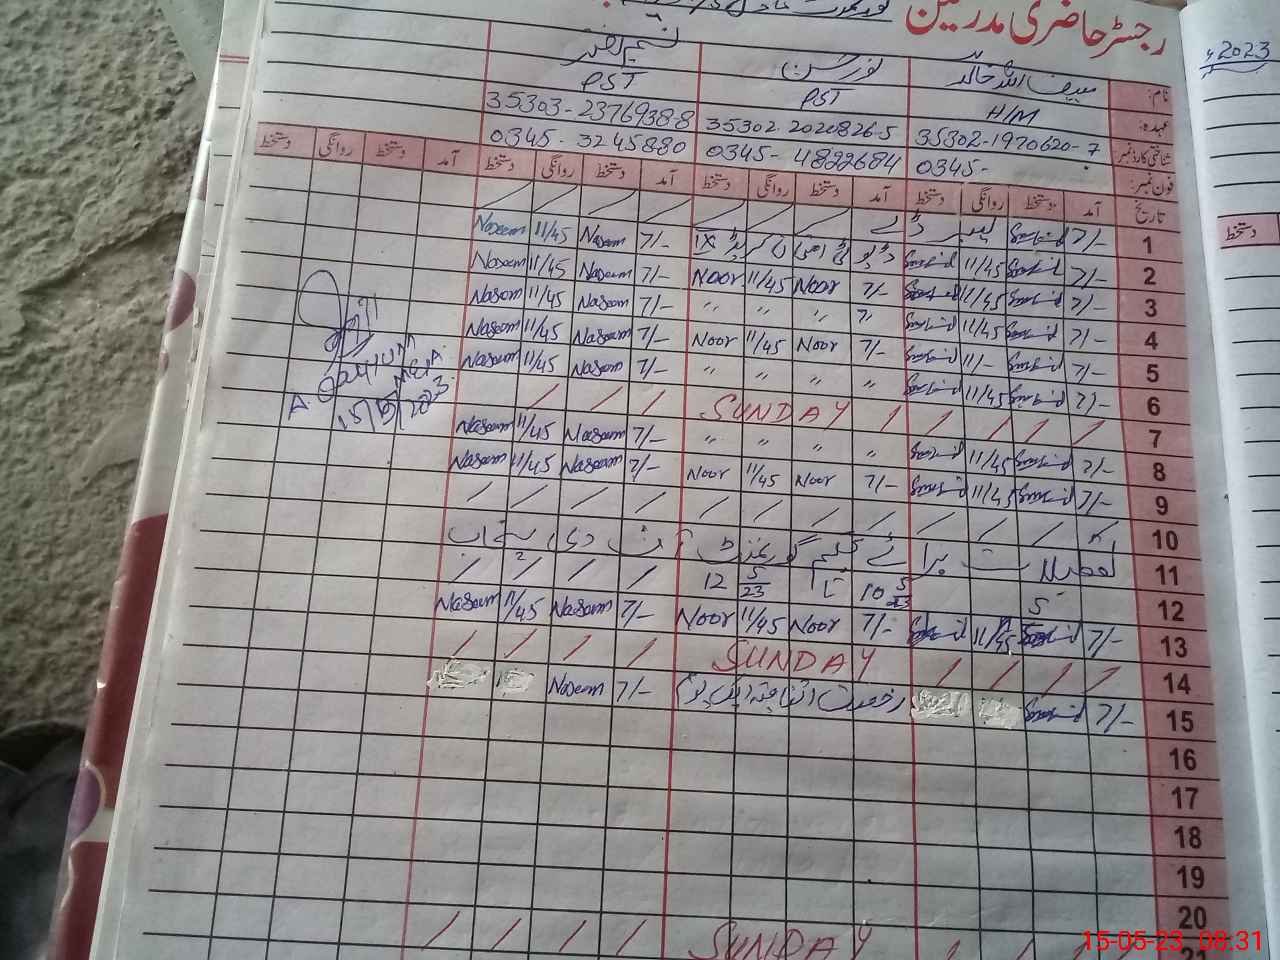 رجسٹر حاضری مدرسین
2023ء
نام: سیف اللہ خالد نورحسن
عہدہ: H/M PST PST
شناختی کارڈ نمبر 35302-1970620-7 35302-2020826-5 35303-2376938-8
فون نمبر: 0345- 0345-4822684 0345-3245880
تاریخ آمد دستخط روانگی دستخط آمد دستخط روانگی دستخط آمد دستخط روانگی دستخط آمد دستخط روانگی دستخط
دستخط
1 7/- لیبر ڈے
2 7/- 11/45 7/- Naseem 11/45 Naseem
3 7/- 11/45 7/- Noor 11/45 Noor 7/- Naseem 11/45 Naseem
4 7/- 11/45 7/- " " " 7/- Naseem 11/45 Naseem
5 7/- 11/- 7/- Noor 11/45 Noor 7/- Naseem 11/45 Naseem
6 7/- 11/45 " " " " 7/- Naseem 11/45 Naseem
7 / / / / SUNDAY / / / /
8 7/- 11/45 " " " 7/- Naseem 11/45 Naseem
9 7/- 11/45 7/- Noor 11/45 Noor 7/- Naseem 11/45 Naseem
10 / / / / / / / / / / / /
11 تعطیلات برائے گورنمنٹ آف دی پنجاب
12 10 5/23 تا 12 5/23 / / / /
13 7/- 11/45 7/- Noor 11/45 Noor 7/- Naseem 11/45 Naseem
14 / / / / SUNDAY / / / /
15 7/- رخصت اتفاقیہ 7/- Naseem
16
17
18
19
20
21 SUNDAY / / / /
A. QAYYUM
MEA
15/5/2023
15-05-23 08:31